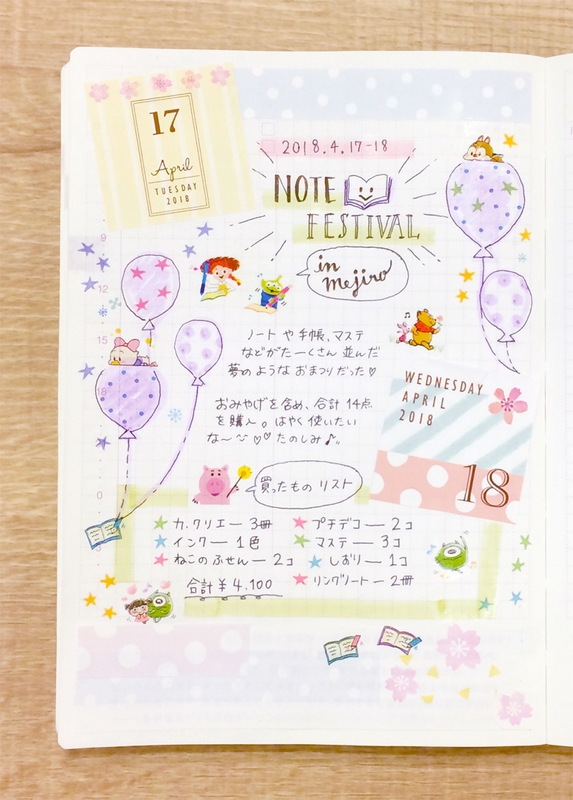 17
April
TUESDAY
2018
2018.4.17-18
NOTE
FESTIVAL
in
mejiro
9
12
18
0
ノートや手帳、マステ
などがたーくさん並んだ
夢のようなおまつりだった♡
おみやげを含め、合計14点
を購入。はやく使いたい
な〜〜♡♡たのしみ♪
WEDNESDAY
APRIL
2018
18
買ったものリスト
★カ.クリエー3冊
★インクー1色
★ねこのふせんー2コ
合計¥4,100
★プチデコー2コ
★マステー3コ
★しおりー1コ
★リングノートー2冊